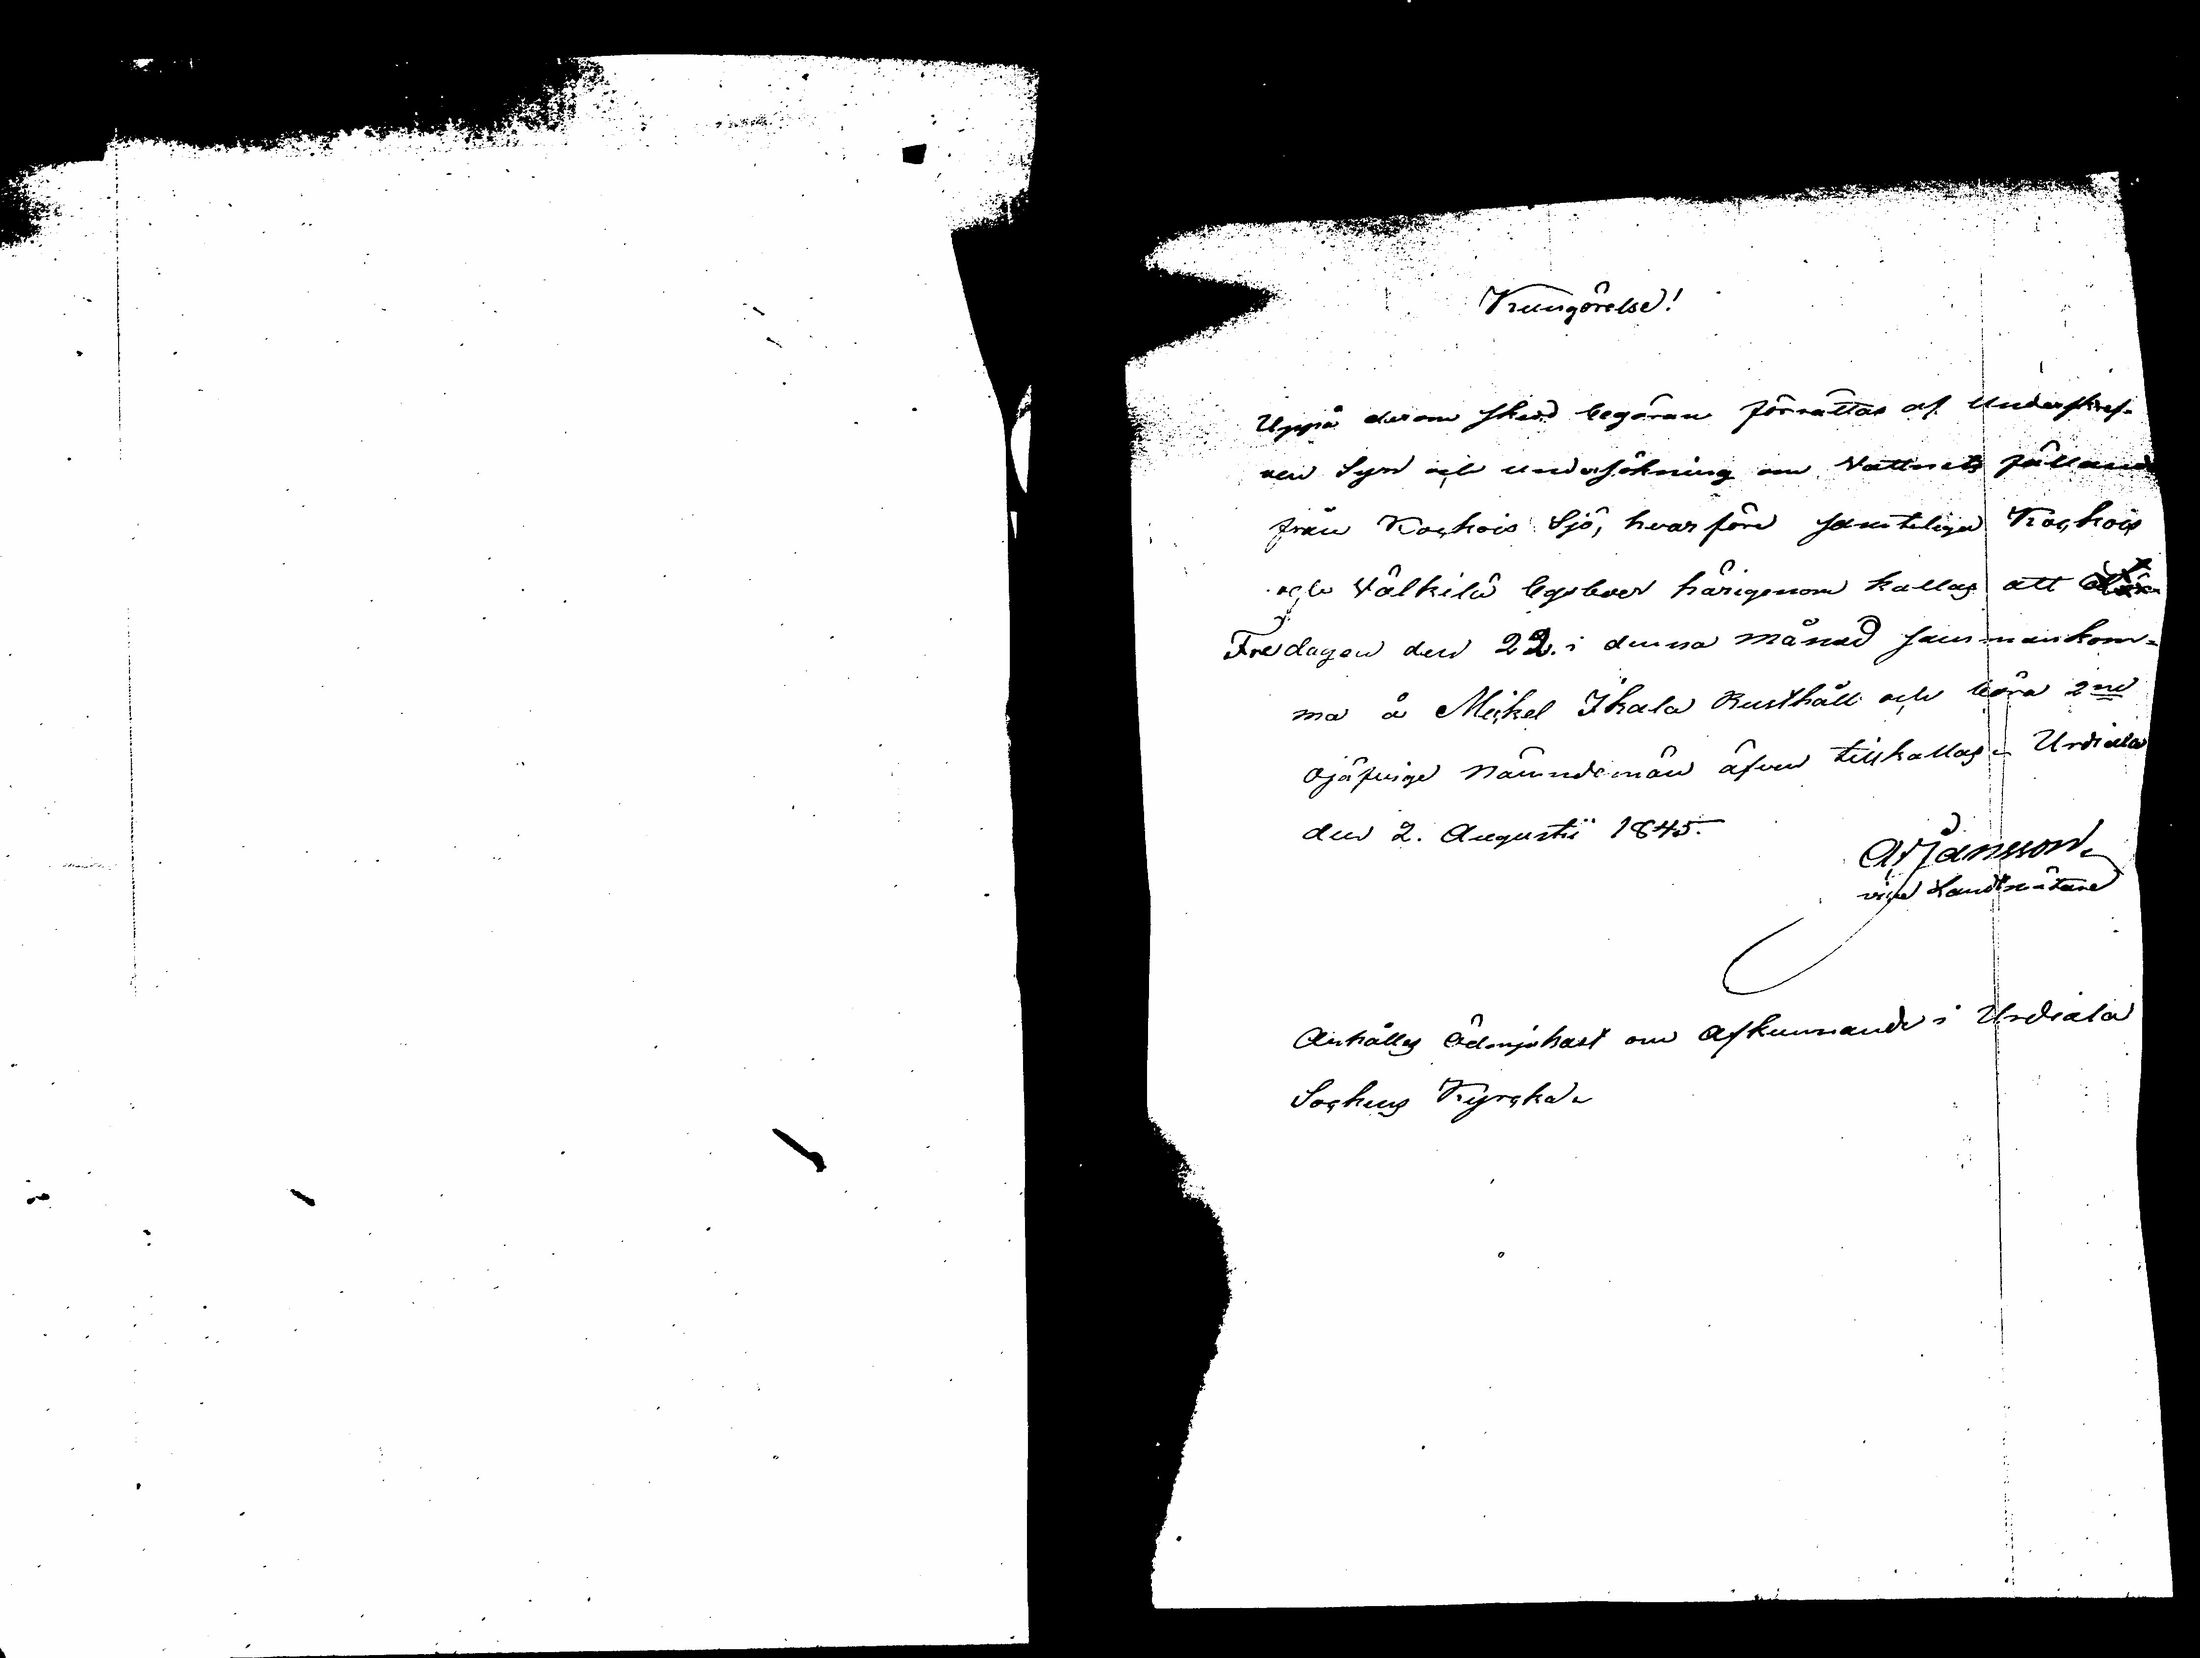 Kungörelse!
Uppå derom skedd begäran förrättas af Underskref-
ven Syn och undersökning om Vattnets fälland
från Koskois Sjö, hvarföre samtelige Koskois
och Välkilä byeboer härigenom kallas att
Fredagen den 22. i denna månad samman kom-
ma å Mickel Ikala Rusthåll och böra 2ne
ojäfvige Nämndemän äfven tillkallas. Urdiala
den 2. Augustii 1845.
Jansson.
vice Landtmätare
Anhålles Ödmjukast om afkunnande i Urdiala
Sockens Kyrcka.